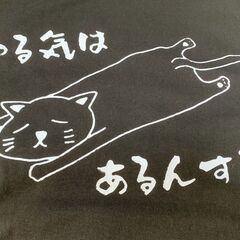 る気は
あるんす